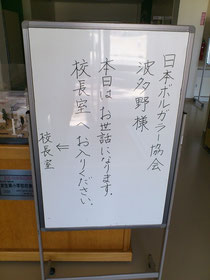 日本ボルガラー協会
波多野様
本日はお世話になります。
校長室へお入りください。
⇐
校長室